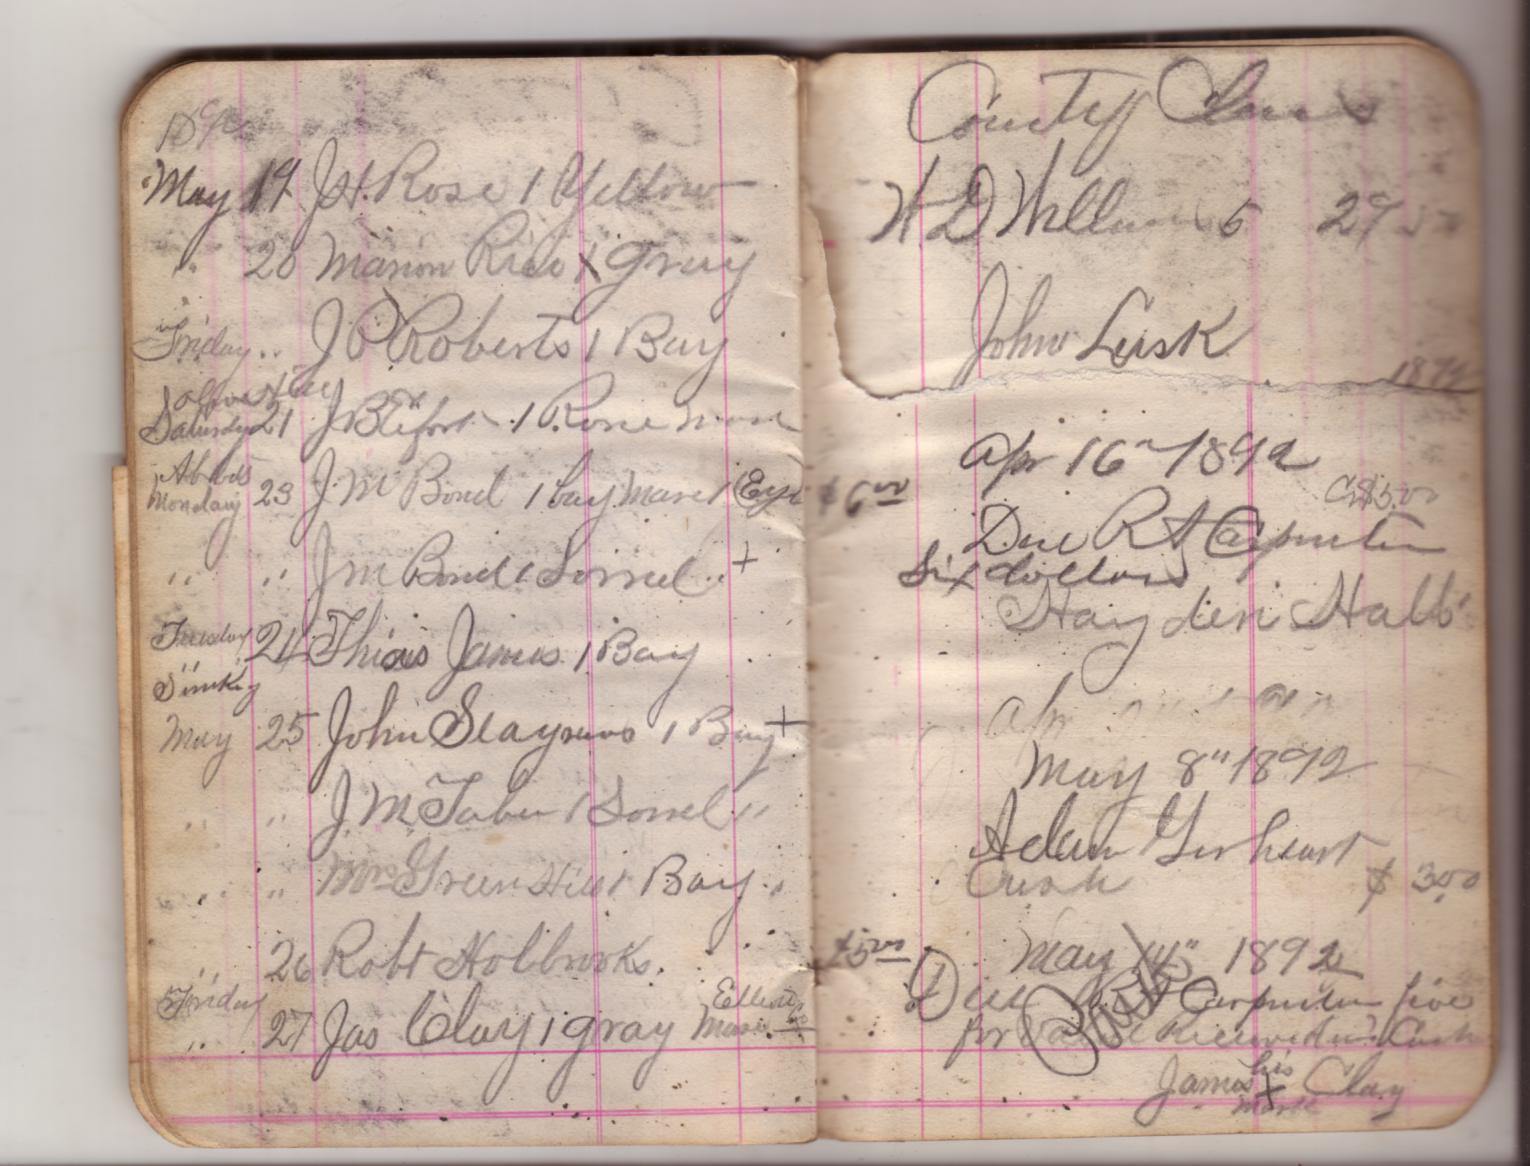 May 19 J.H. Rose 1 Yellow
" 20 Marion Rice 1 gray
Friday " J P Roberts 1 Bay
Saturday 21 J B 1 Rone mare
Monday 23 J. M Bond 1 bay Mare 1 Eye
" " J M Bond 1 Sorrel +
Tuesday 24 James 1 Bay
Sinking
May 25 John Slayuns 1 Bay +
" " J. M Taber 1 Sorrel "
" " Mrs Green Hill 1 Bay "
26 Robt Holbrooks.
Friday
" 27 Jas Clay 1 gray Mare
County
W D 5 29
John Leisk
189
Apr 16" 1892
$6.00 Cr $5.00
Due R A Carpenter
Six dollars
Hayden Hall
Apr
May 8" 1892
Adam Gerheart
$ 3.00
May 14" 1892
$5.00
Due R A Carpenter five
for Value Received in Cash
Paid
his
James X Clay
mark